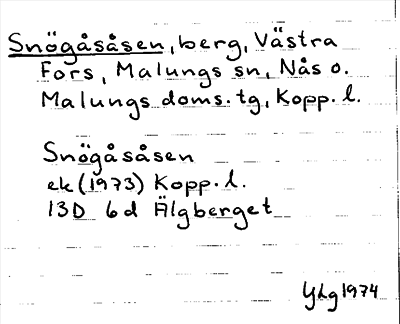 Snögåsåsen, berg, Västra
Fors, Malungs sn, Nås o.
Malungs doms. tg, Kopp. l.
Snögåsåsen
ek (1973) Kopp. l.
13D 6d Älgberget
Yhg 1974